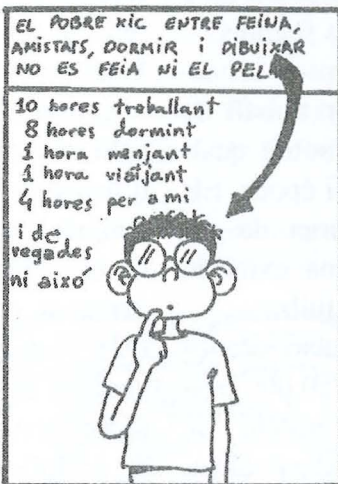 EL POBRE XIC ENTRE FEINA,
AMISTATS, DORMIR i DIBUIXAR
NO ES FEIA NI EL PEL
10 hores treballant
8 hores dormint
1 hora menjant
1 hora viatjant
4 hores per a mi
i de
vegades
ni aixó